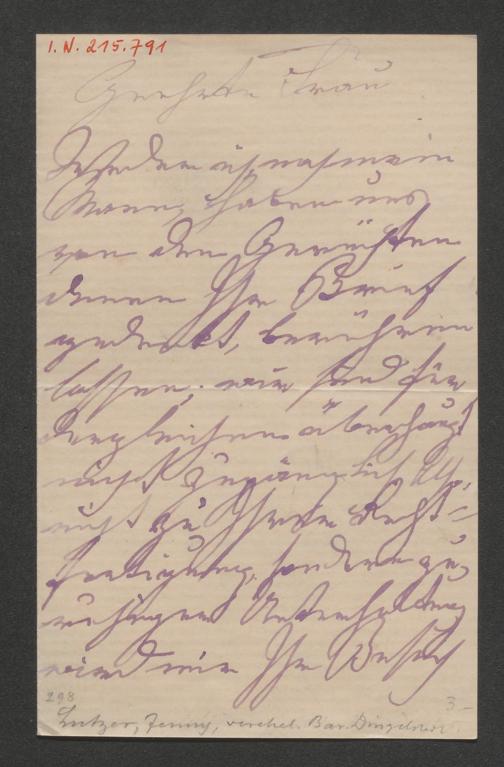 I. N. 215.791
Geehrte Frau
Weder ich, noch mein
Mann, haben uns
von den Gerüchten
denen Ihr Brief
gedenkt, berühren
lassen, wir sind für
dergleichen überhaupt
nicht zugänglich
nicht zu Ihrer Recht=
fertigung, sondern zu
ruhiger Unterhaltung
wird mir Ihr Besuch
298
3.-
Lutzer, Jenny, verehel. Bar. Dingelstedt